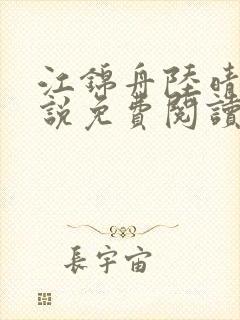 江錦舟陸晴
說免費閱讀
長宇宙